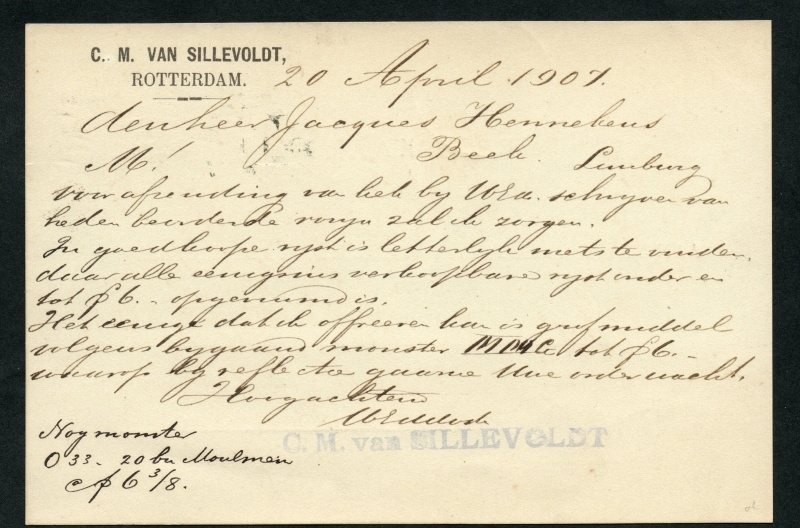 C. M. VAN SILLEVOLDT,
ROTTERDAM.
20 April 1907.
den heer Jacques Hennekens
M! Beek. Limburg
voor afzending van heb by UEd. schryven van
heden beorderde zal ik zorgen.
In goedkoope ryst is letterlyk niets te vinden,
daar alle eenigzins verkoopbare ryst onder en
tot ƒ 6.- opgeruimd is.
Het eenige dat ik offreeren kan is grof middel
volgens bygaand monster tot ƒ 6.-
waarop by reflectie gaarne Uwe order wacht.
Hoogachtend
UEd
C. M. van SILLEVOLDT
Nog monster
O 33 - 20 bn Moulmein
à ƒ 6 3/8.